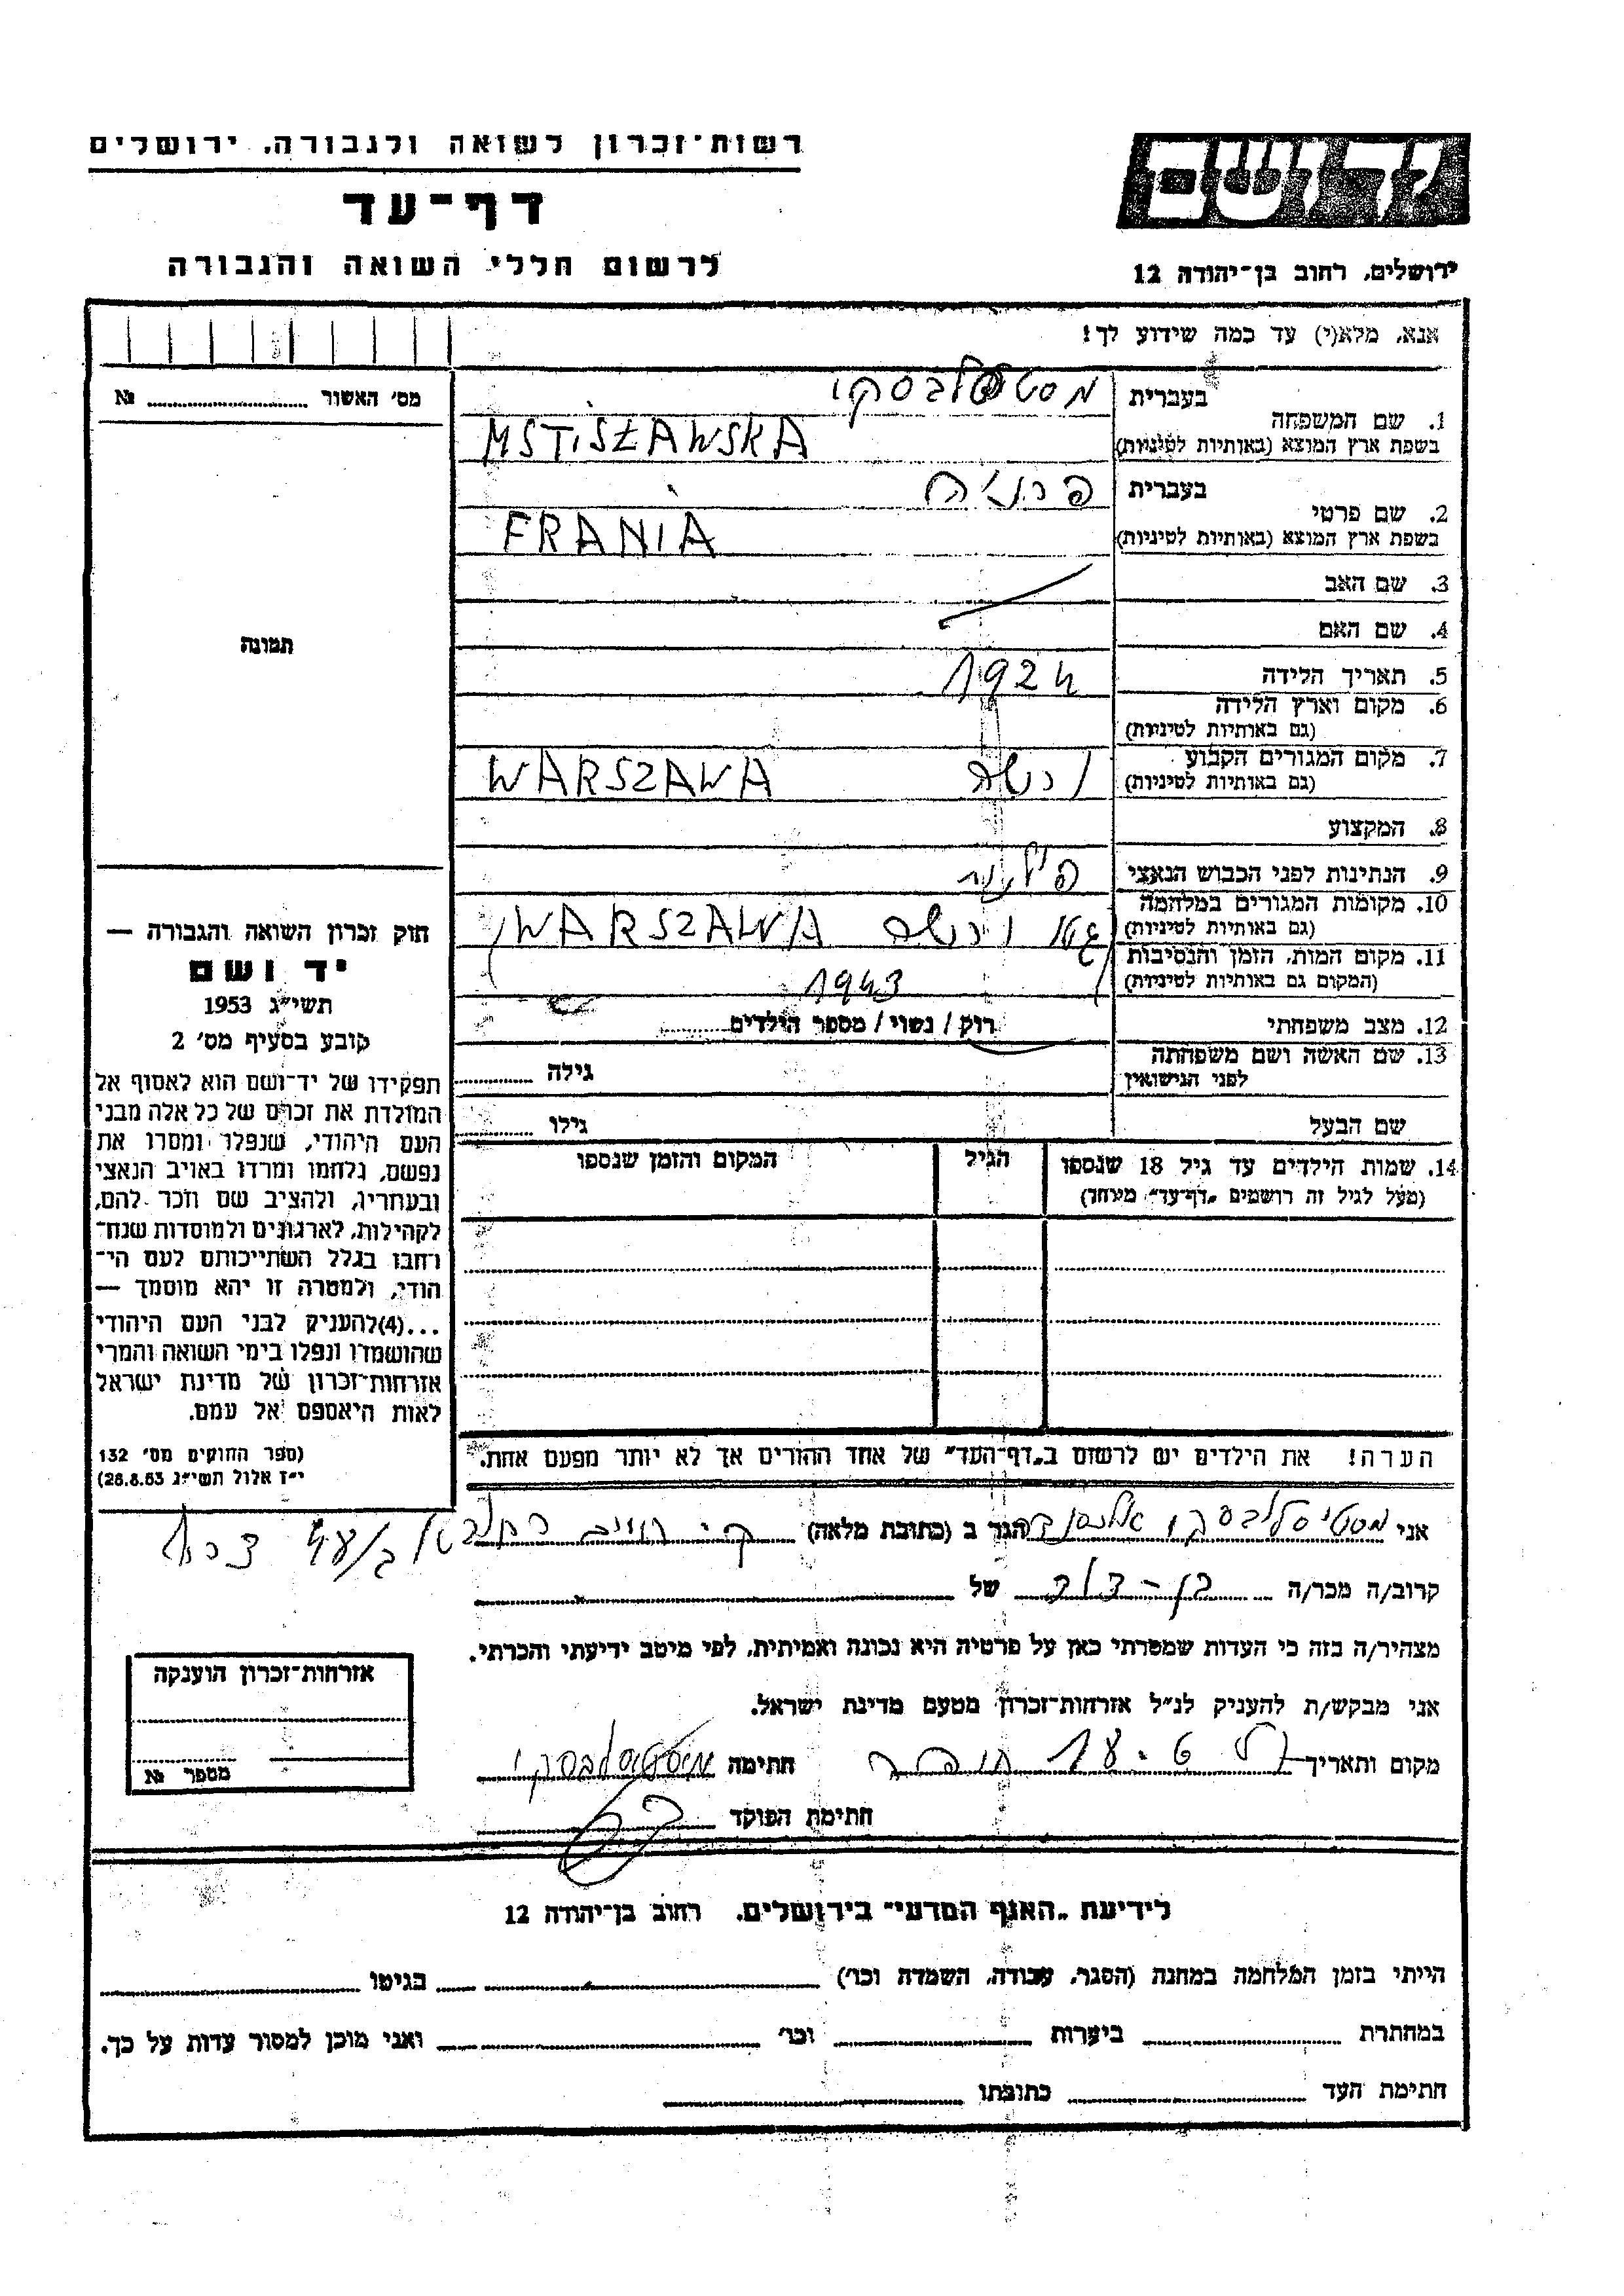 רשות־זכרון לשואה ולגבורה, ירושלים
דף־עד
לרשום חללי השואה והגבורה
יד ושם
ירושלים, רחוב בן־יהודה 12
אנא, מלא(י) עד כמה שידוע לך!
מס׳ האשור № ........
תמונה
1. שם המשפחה
בעברית מסטיסלבסקי
בשפת ארץ המוצא (באותיות לטיניות) MSTISŁAWSKA
2. שם פרטי
בעברית פרניה
בשפת ארץ המוצא (באותיות לטיניות) FRANIA
3. שם האב
4. שם האם
5. תאריך הלידה 1924
6. מקום וארץ הלידה
(גם באותיות לטיניות)
7. מקום המגורים הקבוע ורשה WARSZAWA
(גם באותיות לטיניות)
8. המקצוע
9. הנתינות לפני הכבוש הנאצי פולנית
10. מקומות המגורים במלחמה
(גם באותיות לטיניות) גטו ורשה WARSZAWA
11. מקום המות, הזמן והנסיבות
(המקום גם באותיות לטיניות) 1943
12. מצב משפחתי רוק / נשוי / מספר הילדים ........
13. שם האשה ושם משפחתה
לפני הנישואין גילה ........
שם הבעל גילו ........
14. שמות הילדים עד גיל 18 שנספו
(מעל לגיל זה רושמים „דף־עד” מיוחד)
הגיל
המקום והזמן שנספו
הערה! את הילדים יש לרשום ב„דף־העד” של אחד ההורים אך לא יותר מפעם אחת.
חוק זכרון השואה והגבורה —
יד ושם
תשי״ג 1953
קובע בסעיף מס׳ 2
תפקידו של יד־ושם הוא לאסוף אל
המולדת את זכרם של כל אלה מבני
העם היהודי, שנפלו ומסרו את
נפשם, נלחמו ומרדו באויב הנאצי
ובעוזריו, ולהציב שם וזכר להם,
לקהילות, לארגונים ולמוסדות שנח־
רחבו בגלל השתייכותם לעם הי־
הודי, ולמטרה זו יהא מוסמך —
...(4)להעניק לבני העם היהודי
שהושמדו ונפלו בימי השואה והמרי
אזרחות־זכרון של מדינת ישראל
לאות היאספם אל עמם.
(ספר החוקים מס׳ 132
י״ז אלול תשי״ג 28.8.53)
אני מסטיסלבסקי אלכסנדר הגר ב (כתובת מלאה) ק. חיים
קרוב/ה מכר/ה בן־דוד של
מצהיר/ה בזה כי העדות שמסרתי כאן על פרטיה היא נכונה ואמיתית, לפי מיטב ידיעתי והכרתי.
אני מבקש/ת להעניק לנ״ל אזרחות־זכרון מטעם מדינת ישראל.
מקום ותאריך חתימה מסטיסלבסקי
חתימת הפוקד
אזרחות־זכרון הוענקה
מספר №
לידיעת „האגף המדעי” בירושלים, רחוב בן־יהודה 12
הייתי בזמן המלחמה במחנה (הסגר, עבודה, השמדה וכו׳) בגיטו
במחתרת ביערות וכו׳ ואני מוכן למסור עדות על כך.
חתימת העד כתובתו